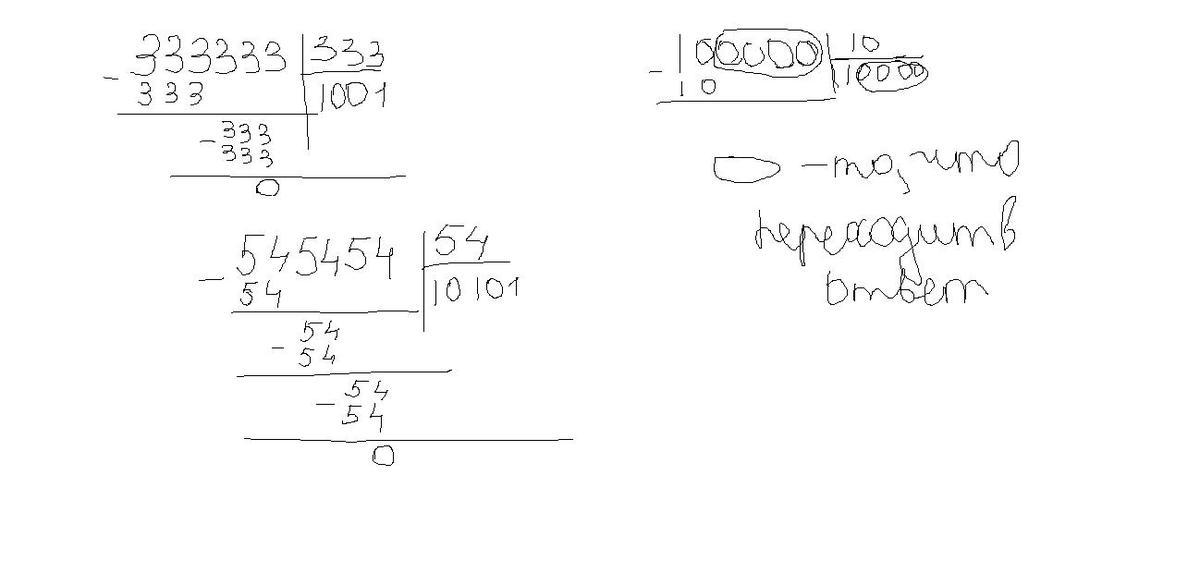 333333 333
- 333 1001
- 333
333
0
545454 54
- 54 10101
- 54
54
- 54
54
0
100000 10
- 10 10000
- то, что
переходит в
ответ